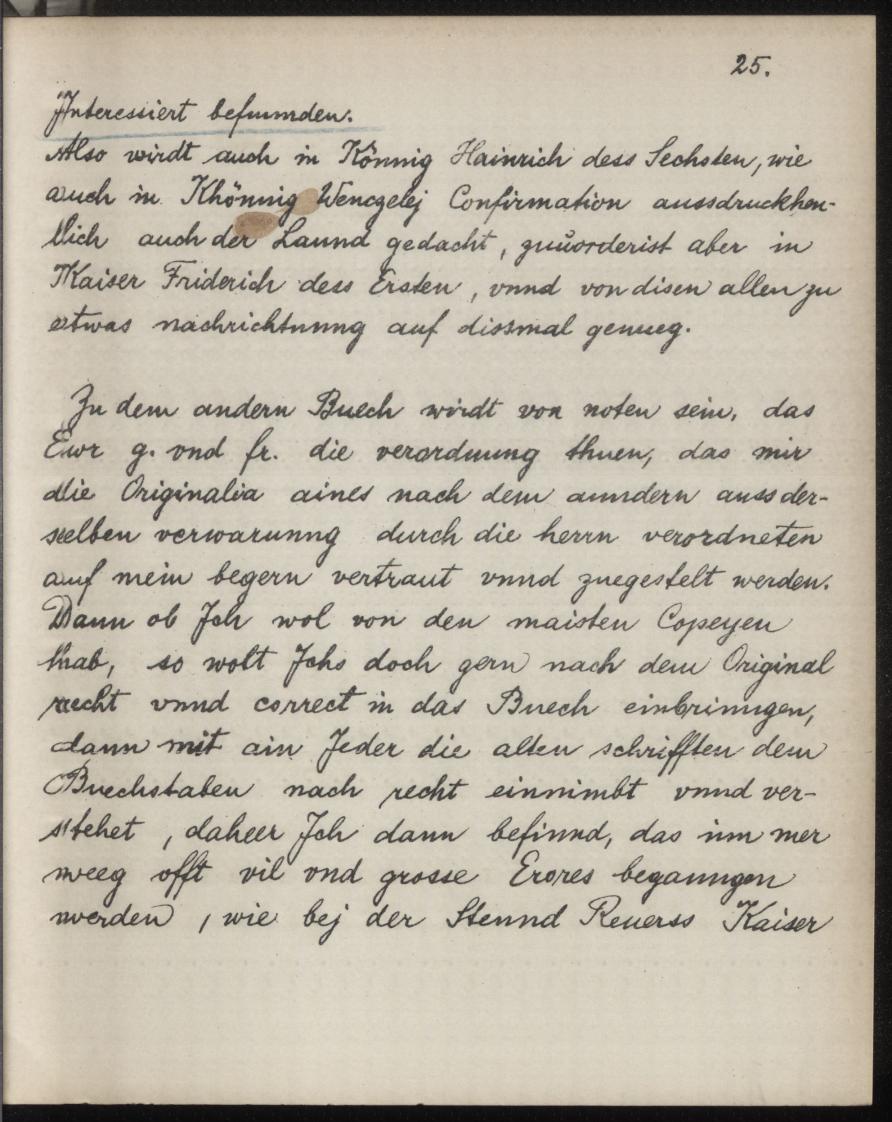 25.
Interessiert befunnden.
Also wirdt auch in Könnig Hainrich dess Sechsten, wie
auch in Khönnig Wenczelej Confirmation aussdruckhen-
lich auch der Laund gedacht, zuuorderist aber in
Kaiser Friderich dess Ersten, vnnd von disen allen zu
etwas nachrichtnnng auf dissmal genueg.
Zu dem andern Buech wirdt von noten sein, das
Ewr g. vnd fr. die verordnung thuen, das mir
die Originalia aines nach dem anndern auss der-
selben verwarunng durch die herrn verordneten
auf mein begern vertraut vnnd zuegestelt werden.
Dann ob Ich wol von den maisten Copeyen
hab, so wolt Ichs doch gern nach dem Original
recht vnnd correct in das Buech einbrinngen,
dann mit ain Jeder die alten schrifften dem
Buechstaben nach recht einnimbt vnnd ver-
stehet, daheer Ich dann befinnd, das im mer
weeg offt vil vnd grosse Erores beganngen
werden, wie bej der Stennd Reuerss Kaiser